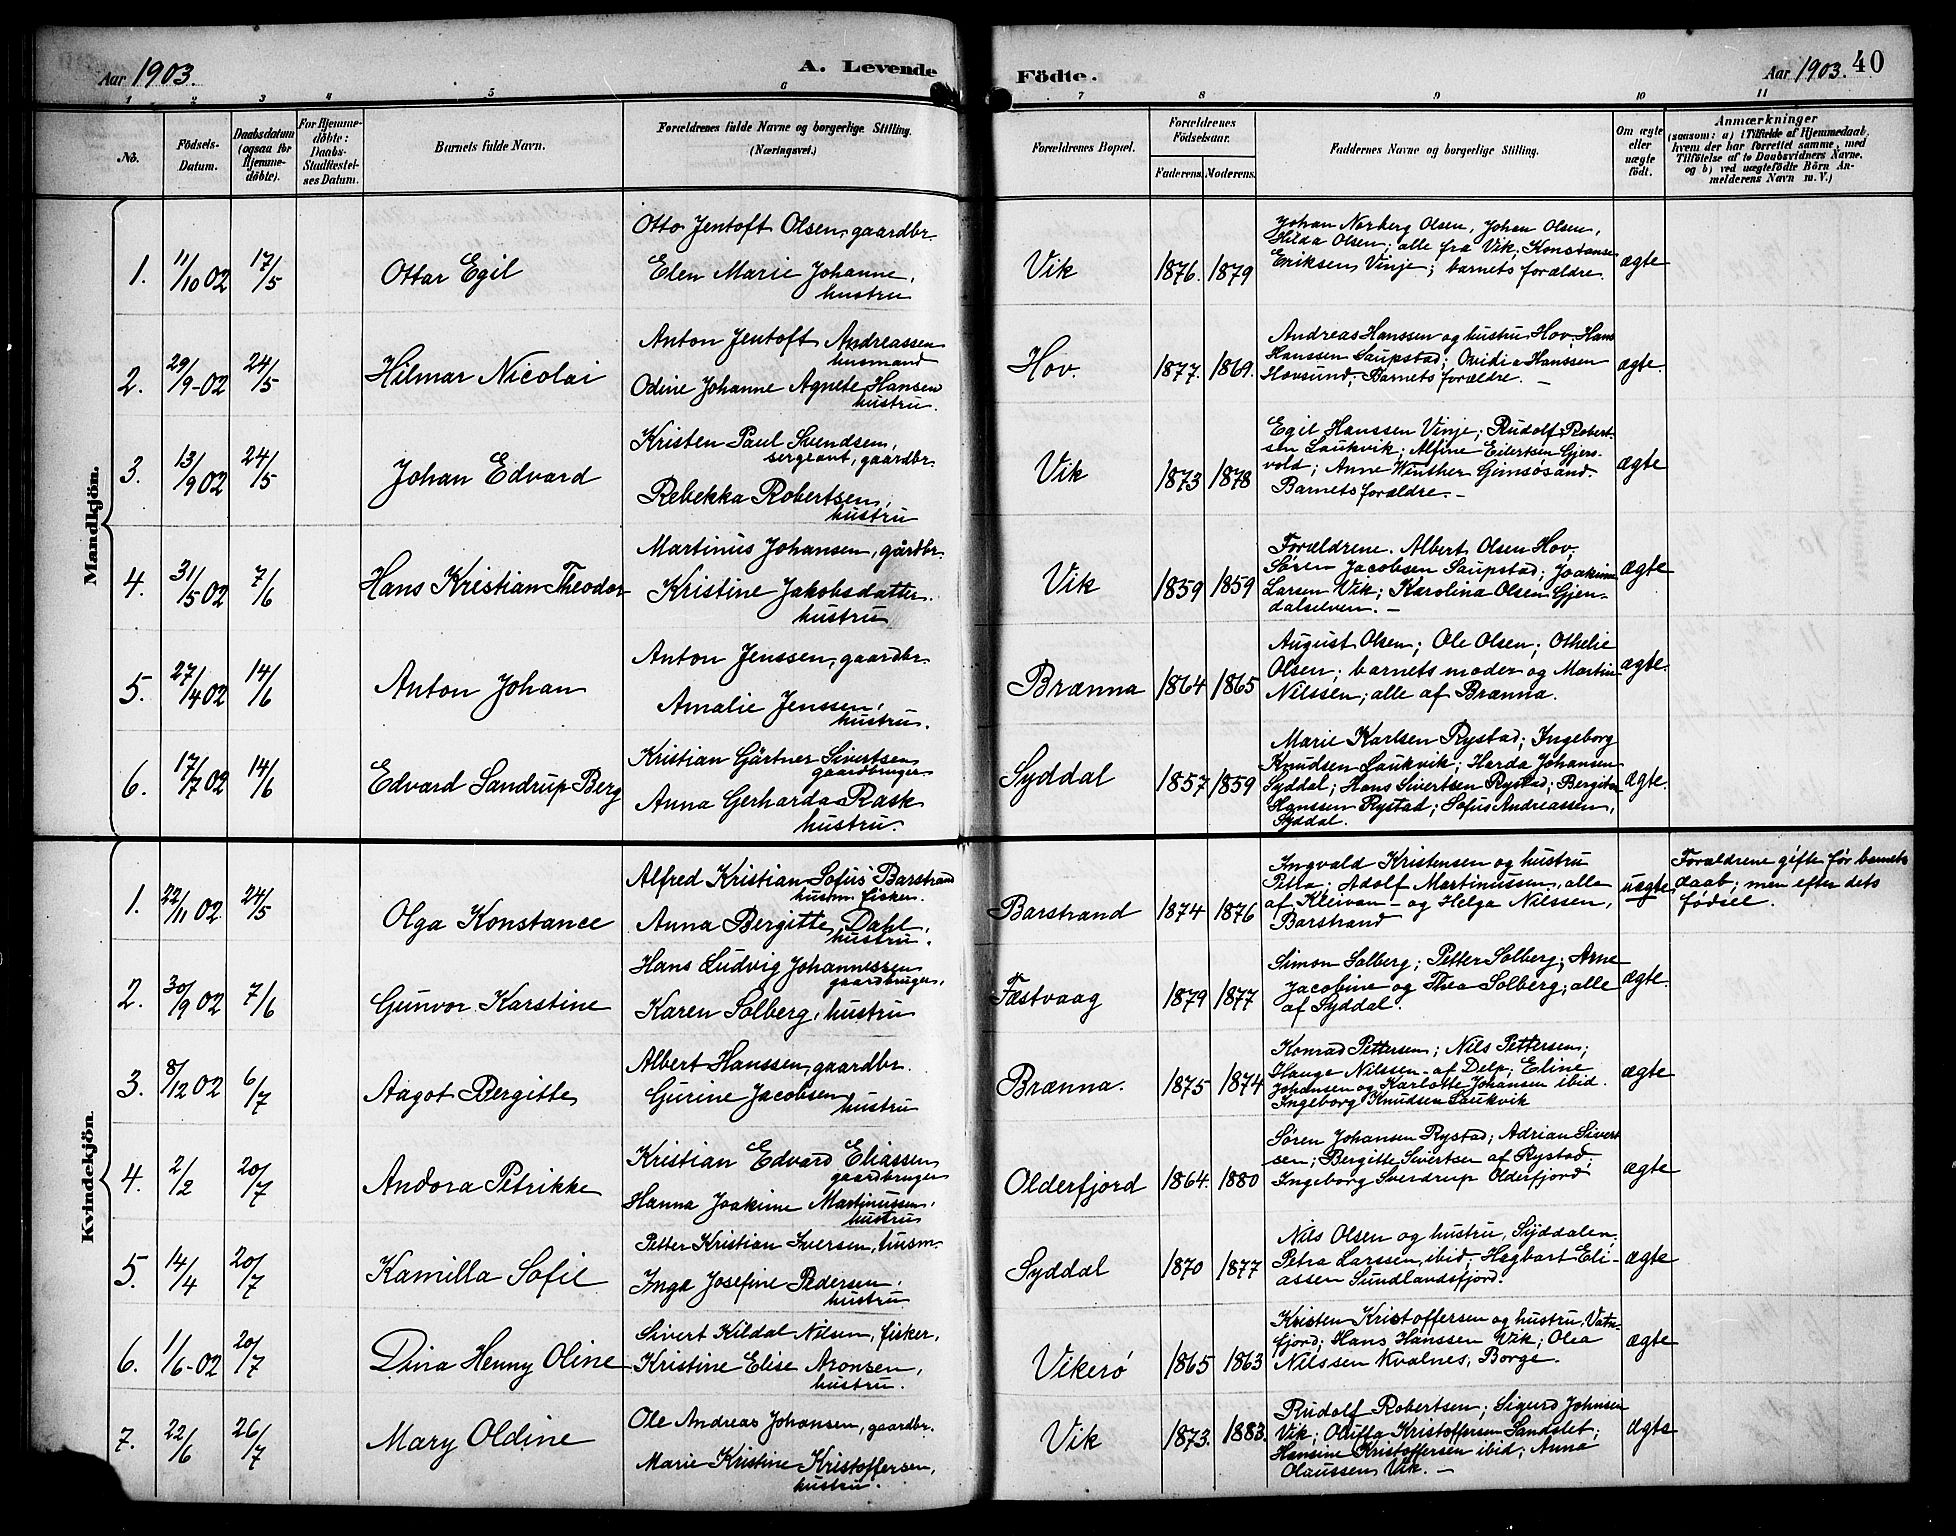 Aar 1903.
A. Levende Födte.
Aar 1903. 40
1 2 3 4 5 6 7 8 9 10 11
No.
Födsels-Datum.
Daabsdatum (ogsaa for Hjemme-döbte).
For Hjemme-döbte: Daabs-Stadfæstel-ses Datum.
Barnets fulde Navn.
Forældrenes fulde Navne og borgerlige Stilling.
(Næringsvei.)
Forældrenes Bopæl.
Forældrenes Födselsaar.
Faderens. Moderens.
Faddernes Navne og borgerlige Stilling.
Om ægte eller uægte födt.
Anmærkninger
(saasom: a) i Tilfælde af Hjemmedaab,
hvem der har forrettet samme, med
Tilföielse af to Daabsvidners Navne,
og b) ved uægtefödte Börn An-
melderens Navn m. V.)
Mandkjön.
1. 11/10 02 17/5 Ottar Egil
Otto Jentoft Olsen, gaardbr.
Elen Marie Johanne,
hustru
Vik 1876. 1879
Johan Norberg Olsen, Johan Olsen,
Hilda Olsen; alle fra Vik, Konstanse
Eriksen Vinje; barnets forældre.
ægte
2. 29/9-02 24/5 Hilmar Nicolai
Anton Jentoft Andreassen
husmand
Odine Johanne Agnete Hansen
hustru.
Hov. 1877. 1869.
Andreas Hanssen og hustru Hov; Hans
Hanssen Saupstad; Ovidie Hanssen
Hovsund; Barnets forældre. —
ægte.
3. 13/9 02 24/5 Johan Edvard
Kristen Paul Svendsen,
sergeant, gaardbr.
Rebekka Robertsen,
hustru
Vik 1873 1878
Egil Hanssen Vinje; Rudolf Robert-
sen Laukvik; Alfine Eilertsen Gjers-
vold; Anne Winther Gimsøsand.
Barnets forældre. —
ægte
4. 31/5 02 7/6 Hans Kristian Theodor
Martinus Johansen, gårdbr.
Kristine Jakobsdatter.
hustru
Vik 1859 1859
Forældrene. Albert Olsen Hov,
Søren Jacobsen Saupstad; Joakim
Larsen Vik; Karolina Olsen Gjen-
dalselven. —
ægte
5. 27/4 02 14/6 Anton Johan
Anton Jenssen, gaardbr.
Amalie Jenssen,
hustru.
Brænna 1864 1865
August Olsen; Ole Olsen; Othelie
Olsen; barnets moder og Martin
Nilssen; alle af Brænna.
ægte.
6. 17/7 02 14/6 Edvard Sandrup Berg
Kristian Gärtner Sivertsen
gaardbruger
Anna Gerharda Rask
hustru.
Syddal 1857 1859
Marie Karlsen Rystad; Ingeborg
Knudsen Laukvik; Harda Johansen
Syddal; Hans Sivertsen Rystad; Bergitte
Hanssen Rystad; Sofus Andreassen,
Syddal.
ægte.
Kvindekjön.
1. 22/11 02 24/5 Olga Konstance
Alfred Kristian Sofus Barstrand
husm. fisker.
Anna Bergitte Dahl,
hustru.
Barstrand 1874 1876
Ingvald Kristensen og hustru
Petra; Adolf Martinussen, alle
af Kleivan - og Helga Nilssen,
Barstrand
uægte
Forældrene gifte før barnets
daab; men efter dets
fødsel.
2. 30/9 02 7/6 Gunvor Karstine
Hans Ludvig Johannessen
gaardbruger,
Karen Solberg, hustru
Fæstvaag 1879 1877
Simon Solberg; Petter Solberg; Arne
Jacobine og Thea Solberg; alle
af Syddal.
ægte.
3. 8/12 02 6/7 Aagot Bergitte
Albert Hanssen, gaardbr.
Gurine Jacobsen
hustru
Brænna. 1875 1874
Konrad Pettersen; Nils Pettersen;
Hauge Nilssen - af Delp; Eline
Johansen og Karlotte Johansen ibid.
Ingeborg Knudsen Laukvik
ægte
4. 2/2 20/7 Andora Petrikke
Kristian Edvard Eliassen
gaardbruger
Hanna Joakime Martinussen,
hustru
Olderfjord 1864. 1880
Søren Johansen Rystad; Adrian Sivert
sen; Bergitte Sivertsen af Rystad,
Ingeborg Sverdrup Olderfjord
ægte
5. 14/4 20/7 Kamilla Sofie
Petter Kristian Iversen, husm.
Inga Josefine Pedersen,
hustru
Syddal 1870 1877
Nils Olsen og hustru, Syddalen.
Petra Larssen, ibid; Hegbart Eli-
assen Sundlandsfjord.
ægte
6. 1/6-02 20/7 Dina Henny Oline
Sivert Kildal Nilsen, fisker,
Kristine Elise Aronsen,
hustru.
Vikerö 1865 1863
Kristen Kristoffersen og hustru, Vatn-
fjord; Hans Hanssen Vik; Olea
Nilssen Kvalnes; Borge.
ægte
7. 22/6 26/7 Mary Oldine
Ole Andreas Johansen, gaardbr.
Marie Kristine Kristoffersen,
hustru.
Vik 1873. 1883.
Rudolf Robertsen; Sigurd Johnsen
Vik; Kristoffersen Sandslet;
Hansine Kristoffersen ibid; Anna
Olaussen Vik. —
ægte